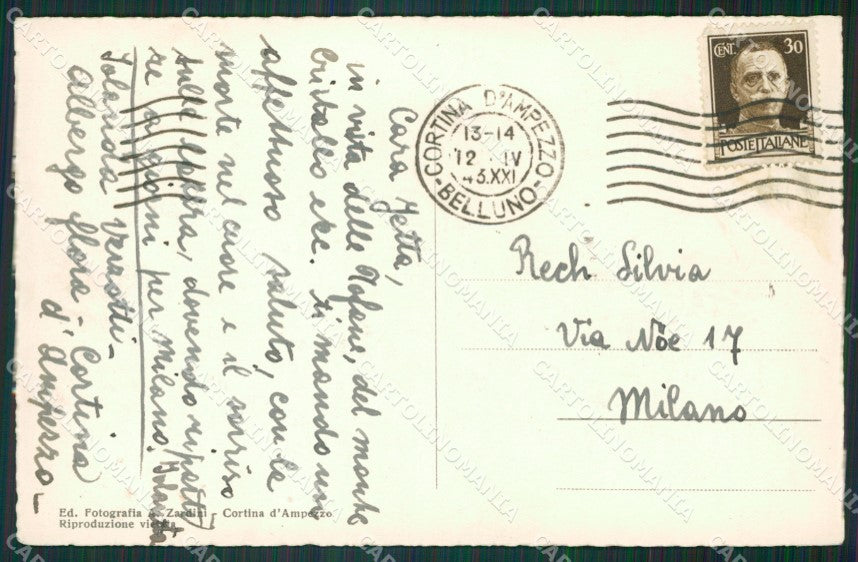 Cara Jetta,
in vista delle Tofane, del monte
Cristallo ecc. ti mando un
affettuoso saluto, con la
morte nel cuore e il sorriso
sulle labbra, dovendo
giorni per Milano. Jolanda
Jolanda
Albergo Flora - Cortina
d'Ampezzo -
CORTINA D'AMPEZZO
13-14
12 IV
43.XXI
- BELLUNO -
CENT. 30
POSTE ITALIANE
Rech Silvia
Via Nöe 17
Milano
Ed. Fotografia Zardini - Cortina d'Ampezzo
Riproduzione vietata
CARTOLINOMANIA